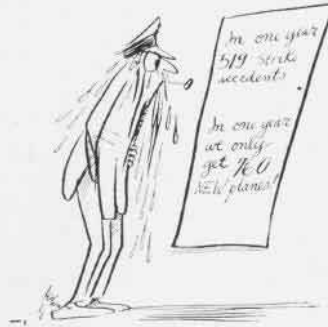 In one year
519 Strike
accidents
In one year
we only
get
NEW planes!